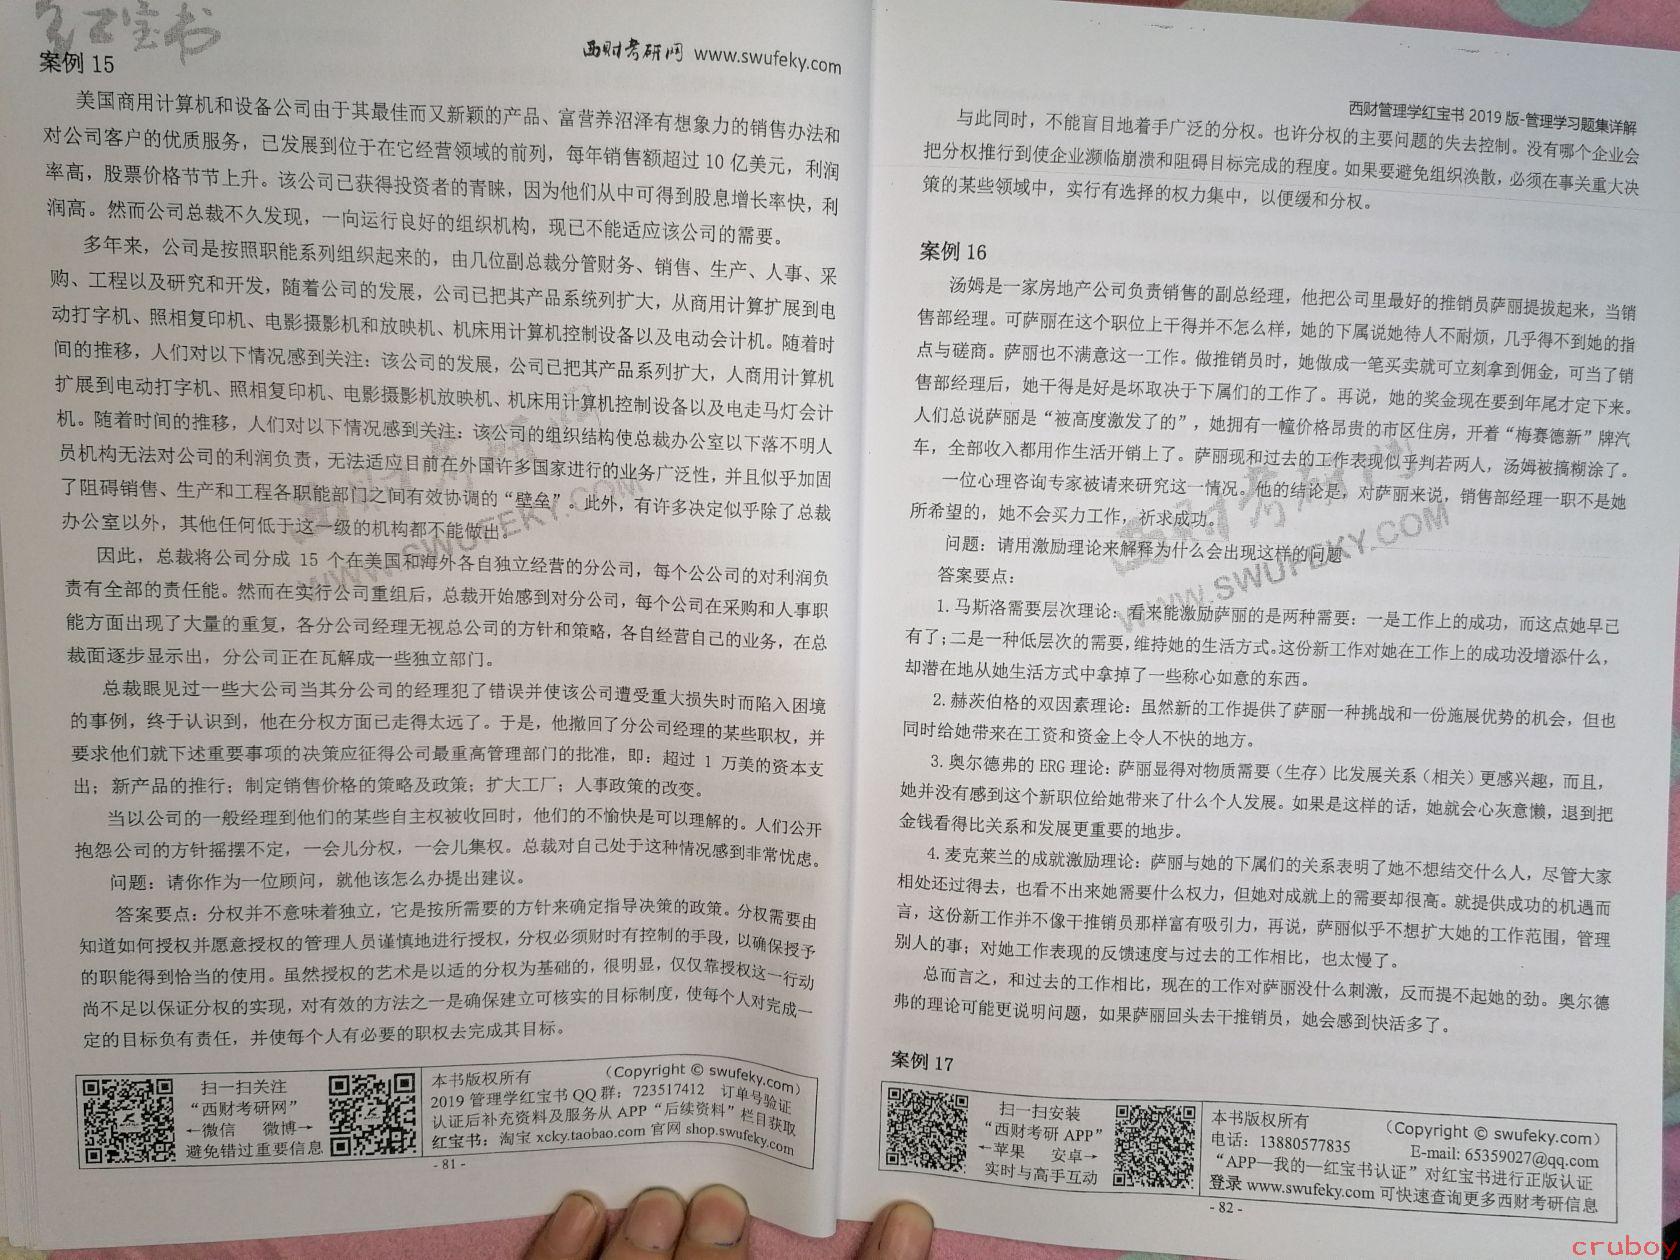 红宝书
西财考研网 www.swufeky.com
案例 15
美国商用计算机和设备公司由于其最佳而又新颖的产品、富营养沼泽有想象力的销售办法和
对公司客户的优质服务，已发展到位于在它经营领域的前列，每年销售额超过 10 亿美元，利润
率高，股票价格节节上升。该公司已获得投资者的青睐，因为他们从中可得到股息增长率快，利
润高。然而公司总裁不久发现，一向运行良好的组织机构，现已不能适应该公司的需要。
多年来，公司是按照职能系列组织起来的，由几位副总裁分管财务、销售、生产、人事、采
购、工程以及研究和开发，随着公司的发展，公司已把其产品系统列扩大，从商用计算扩展到电
动打字机、照相复印机、电影摄影机和放映机、机床用计算机控制设备以及电动会计机。随着时
间的推移，人们对以下情况感到关注：该公司的发展，公司已把其产品系列扩大，人商用计算机
扩展到电动打字机、照相复印机、电影摄影机放映机、机床用计算机控制设备以及电走马灯会计
机。随着时间的推移，人们对以下情况感到关注：该公司的组织结构使总裁办公室以下落不明人
员机构无法对公司的利润负责，无法适应目前在外国许多国家进行的业务广泛性，并且似乎加固
了阻碍销售、生产和工程各职能部门之间有效协调的“壁垒”。此外，有许多决定似乎除了总裁
办公室以外，其他任何低于这一级的机构都不能做出。
因此，总裁将公司分成 15 个在美国和海外各自独立经营的分公司，每个公公司的对利润负
责有全部的责任能。然而在实行公司重组后，总裁开始感到对分公司，每个公司在采购和人事职
能方面出现了大量的重复，各分公司经理无视总公司的方针和策略，各自经营自己的业务，在总
裁面逐步显示出，分公司正在瓦解成一些独立部门。
总裁眼见过一些大公司当其分公司的经理犯了错误并使该公司遭受重大损失时而陷入困境
的事例，终于认识到，他在分权方面已走得太远了。于是，他撤回了分公司经理的某些职权，并
要求他们就下述重要事项的决策应征得公司最重高管理部门的批准，即：超过 1 万美的资本支
出；新产品的推行；制定销售价格的策略及政策；扩大工厂；人事政策的改变。
当以公司的一般经理到他们的某些自主权被收回时，他们的不愉快是可以理解的。人们公开
抱怨公司的方针摇摆不定，一会儿分权，一会儿集权。总裁对自己处于这种情况感到非常忧虑。
问题：请你作为一位顾问，就他该怎么办提出建议。
答案要点：分权并不意味着独立，它是按所需要的方针来确定指导决策的政策。分权需要由
知道如何授权并愿意授权的管理人员谨慎地进行授权，分权必须财时有控制的手段，以确保授予
的职能得到恰当的使用。虽然授权的艺术是以适的分权为基础的，很明显，仅仅靠授权这一行动
尚不足以保证分权的实现，对有效的方法之一是确保建立可核实的目标制度，使每个人对完成一
定的目标负有责任，并使每个人有必要的职权去完成其目标。
西财考研网
WWW.SWUFEKY.COM
扫一扫关注
“西财考研网”
←微信 微博→
避免错过重要信息
本书版权所有 （Copyright © swufeky.com）
2019 管理学红宝书 QQ 群：723517412 订单号验证
认证后补充资料及服务从 APP“后续资料”栏目获取
红宝书：淘宝 xcky.taobao.com 官网 shop.swufeky.com
- 81 -
西财管理学红宝书 2019 版-管理学习题集详解
与此同时，不能盲目地着手广泛的分权。也许分权的主要问题的失去控制。没有哪个企业会
把分权推行到使企业濒临崩溃和阻碍目标完成的程度。如果要避免组织涣散，必须在事关重大决
策的某些领域中，实行有选择的权力集中，以便缓和分权。
案例 16
汤姆是一家房地产公司负责销售的副总经理，他把公司里最好的推销员萨丽提拔起来，当销
售部经理。可萨丽在这个职位上干得并不怎么样，她的下属说她待人不耐烦，几乎得不到她的指
点与磋商。萨丽也不满意这一工作。做推销员时，她做成一笔买卖就可立刻拿到佣金，可当了销
售部经理后，她干得是好是坏取决于下属们的工作了。再说，她的奖金现在要到年尾才定下来。
人们总说萨丽是“被高度激发了的”，她拥有一幢价格昂贵的市区住房，开着“梅赛德新”牌汽
车，全部收入都用作生活开销上了。萨丽现和过去的工作表现似乎判若两人，汤姆被搞糊涂了。
一位心理咨询专家被请来研究这一情况。他的结论是，对萨丽来说，销售部经理一职不是她
所希望的，她不会买力工作，祈求成功。
问题：请用激励理论来解释为什么会出现这样的问题
答案要点：
1.马斯洛需要层次理论：看来能激励萨丽的是两种需要：一是工作上的成功，而这点她早已
有了；二是一种低层次的需要，维持她的生活方式。这份新工作对她在工作上的成功没增添什么，
却潜在地从她生活方式中拿掉了一些称心如意的东西。
2.赫茨伯格的双因素理论：虽然新的工作提供了萨丽一种挑战和一份施展优势的机会，但也
同时给她带来在工资和资金上令人不快的地方。
3.奥尔德弗的 ERG 理论：萨丽显得对物质需要（生存）比发展关系（相关）更感兴趣，而且，
她并没有感到这个新职位给她带来了什么个人发展。如果是这样的话，她就会心灰意懒，退到把
金钱看得比关系和发展更重要的地步。
4.麦克莱兰的成就激励理论：萨丽与她的下属们的关系表明了她不想结交什么人，尽管大家
相处还过得去，也看不出来她需要什么权力，但她对成就上的需要却很高。就提供成功的机遇而
言，这份新工作并不像干推销员那样富有吸引力，再说，萨丽似乎不想扩大她的工作范围，管理
别人的事；对她工作表现的反馈速度与过去的工作相比，也太慢了。
总而言之，和过去的工作相比，现在的工作对萨丽没什么刺激，反而提不起她的劲。奥尔德
弗的理论可能更说明问题，如果萨丽回头去干推销员，她会感到快活多了。
案例 17
西财考研网
WWW.SWUFEKY.COM
扫一扫安装
“西财考研 APP”
←苹果 安卓→
实时与高手互动
本书版权所有 （Copyright © swufeky.com）
电话：13880577835 E-mail: 65359027@qq.com
“APP—我的—红宝书认证”对红宝书进行正版认证
登录 www.swufeky.com 可快速查询更多西财考研信息
- 82 -
cruboy